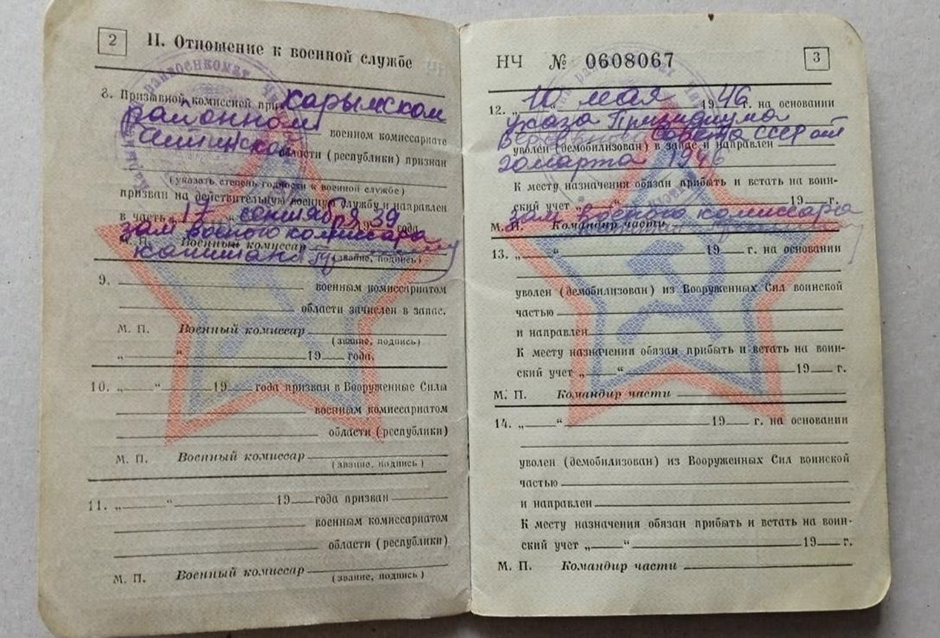 2
II. Отношение к военной службе
8. Призывной комиссией при Карымском
районном военном комиссариате
Читинской области (республики) признан
(указать степень годности к военной службе)
призван на действительную военную службу и направлен
в часть „17“ сентября 39 года
зам военого комиссара
М. П. Военный комиссар
капитан
(звание, подпись)
9.
военным комиссариатом
области зачислен в запас.
М. П. Военный комиссар
(звание, подпись)
„ “ 19 года.
10. „ “ 19 года призван в Вооруженные Силы
военным комиссариатом
области (республики)
М. П. Военный комиссар
(звание, подпись)
11. „ “ 19 года призван
военным комиссариатом
области (республики)
М. П. Военный комиссар
(звание, подпись)
НЧ № 0608067
3
12. „10 мая 1946 г. на основании
указа Президиума
Верховного Совета СССР от
уволен (демобилизован) в запас и направлен
20 марта 1946
К месту назначения обязан прибыть и встать на воин-
ский учет „ “ 19 г.
зам военого комиссара
М. П. Командир части
13. „ “ 19 г. на основании
уволен (демобилизован) из Вооруженных Сил воинской
частью
и направлен
К месту назначения обязан прибыть и встать на воин-
ский учет „ “ 19 г.
М. П. Командир части
14. „ “ 19 г. на основании
уволен (демобилизован) из Вооруженных Сил воинской
частью
и направлен
К месту назначения обязан прибыть и встать на воин-
ский учет „ “ 19 г.
М. П. Командир части